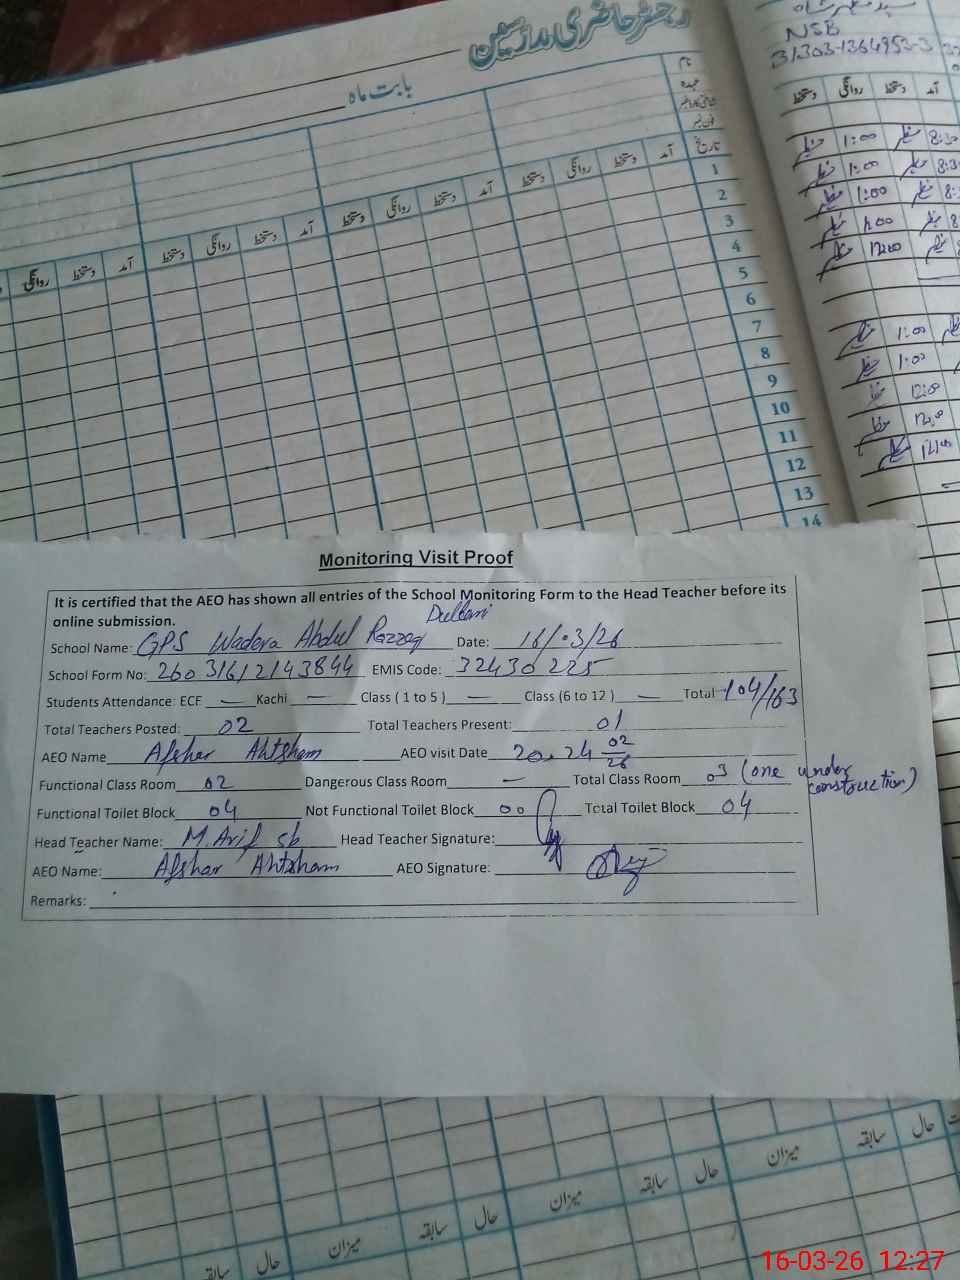 رجسٹر حاضری مدرسین
بابت ماہ
نام
عہدہ
شناختی کارڈ نمبر
فون نمبر
تاریخ
آمد دستخط روانگی دستخط آمد دستخط روانگی دستخط آمد دستخط روانگی دستخط آمد دستخط روانگی
1
2
3
4
5
6
7
8
9
10
11
12
13
14
NSB
31303-1364953-3
آمد دستخط روانگی دستخط
8:30 1:00
8:3 1:00
8: 1:00
8 1:00
12:00
1:00
1:00
12:00
12:00
12:00
Monitoring Visit Proof
It is certified that the AEO has shown all entries of the School Monitoring Form to the Head Teacher before its
online submission.
School Name: GPS Wadera Abdul Razzaq Dullani Date: 16/03/26
School Form No: 26031612143844 EMIS Code: 32430225
Students Attendance: ECF — Kachi — Class ( 1 to 5 ) — Class (6 to 12 ) — Total 104/163
Total Teachers Posted: 02 Total Teachers Present: 01
AEO Name Afshar Ahtsham AEO visit Date 20.24 02/26
Functional Class Room 02 Dangerous Class Room — Total Class Room 03 (one under construction)
Functional Toilet Block 04 Not Functional Toilet Block 00 Total Toilet Block 04
Head Teacher Name: M.Arif sb Head Teacher Signature:
AEO Name: Afshar Ahtsham AEO Signature:
Remarks:
حال سابقہ میزان حال سابقہ میزان حال سابقہ میزان حال سابقہ
16-03-26 12:27